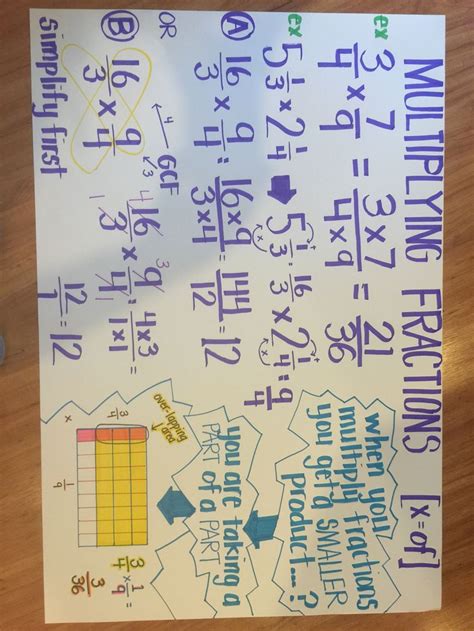 MULTIPLYING FRACTIONS [x=of]
ex 3/4 x 7/9 = 3x7/4x9 = 21/36
ex 5 1/3 x 2 1/4 ➡ 5 1/3 = 16/3 x 2 1/4 = 9/4
x + x +
A 16/3 x 9/4 = 16x9/3x4 = 144/12 = 12
OR
4 GCF 3
B 16/3 x 9/4 4 16/3 1 x 3 9/4 1 = 4x3/1x1 =
Simplify first
12/1 = 12
when you
multiply fractions
you get a SMALLER
product...?
you are taking a
PART of a PART
overlapping
area
3/4
x
1/9
3/4 x 1/9 =
3/36